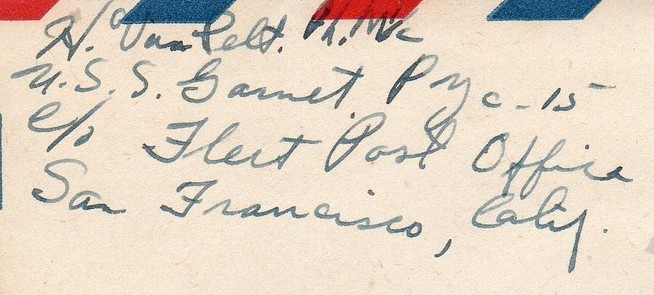 H. VanPelt. Ph.M2c
U.S.S. Garnet PYc-15
c/o Fleet Post Office
San Francisco, Calif.